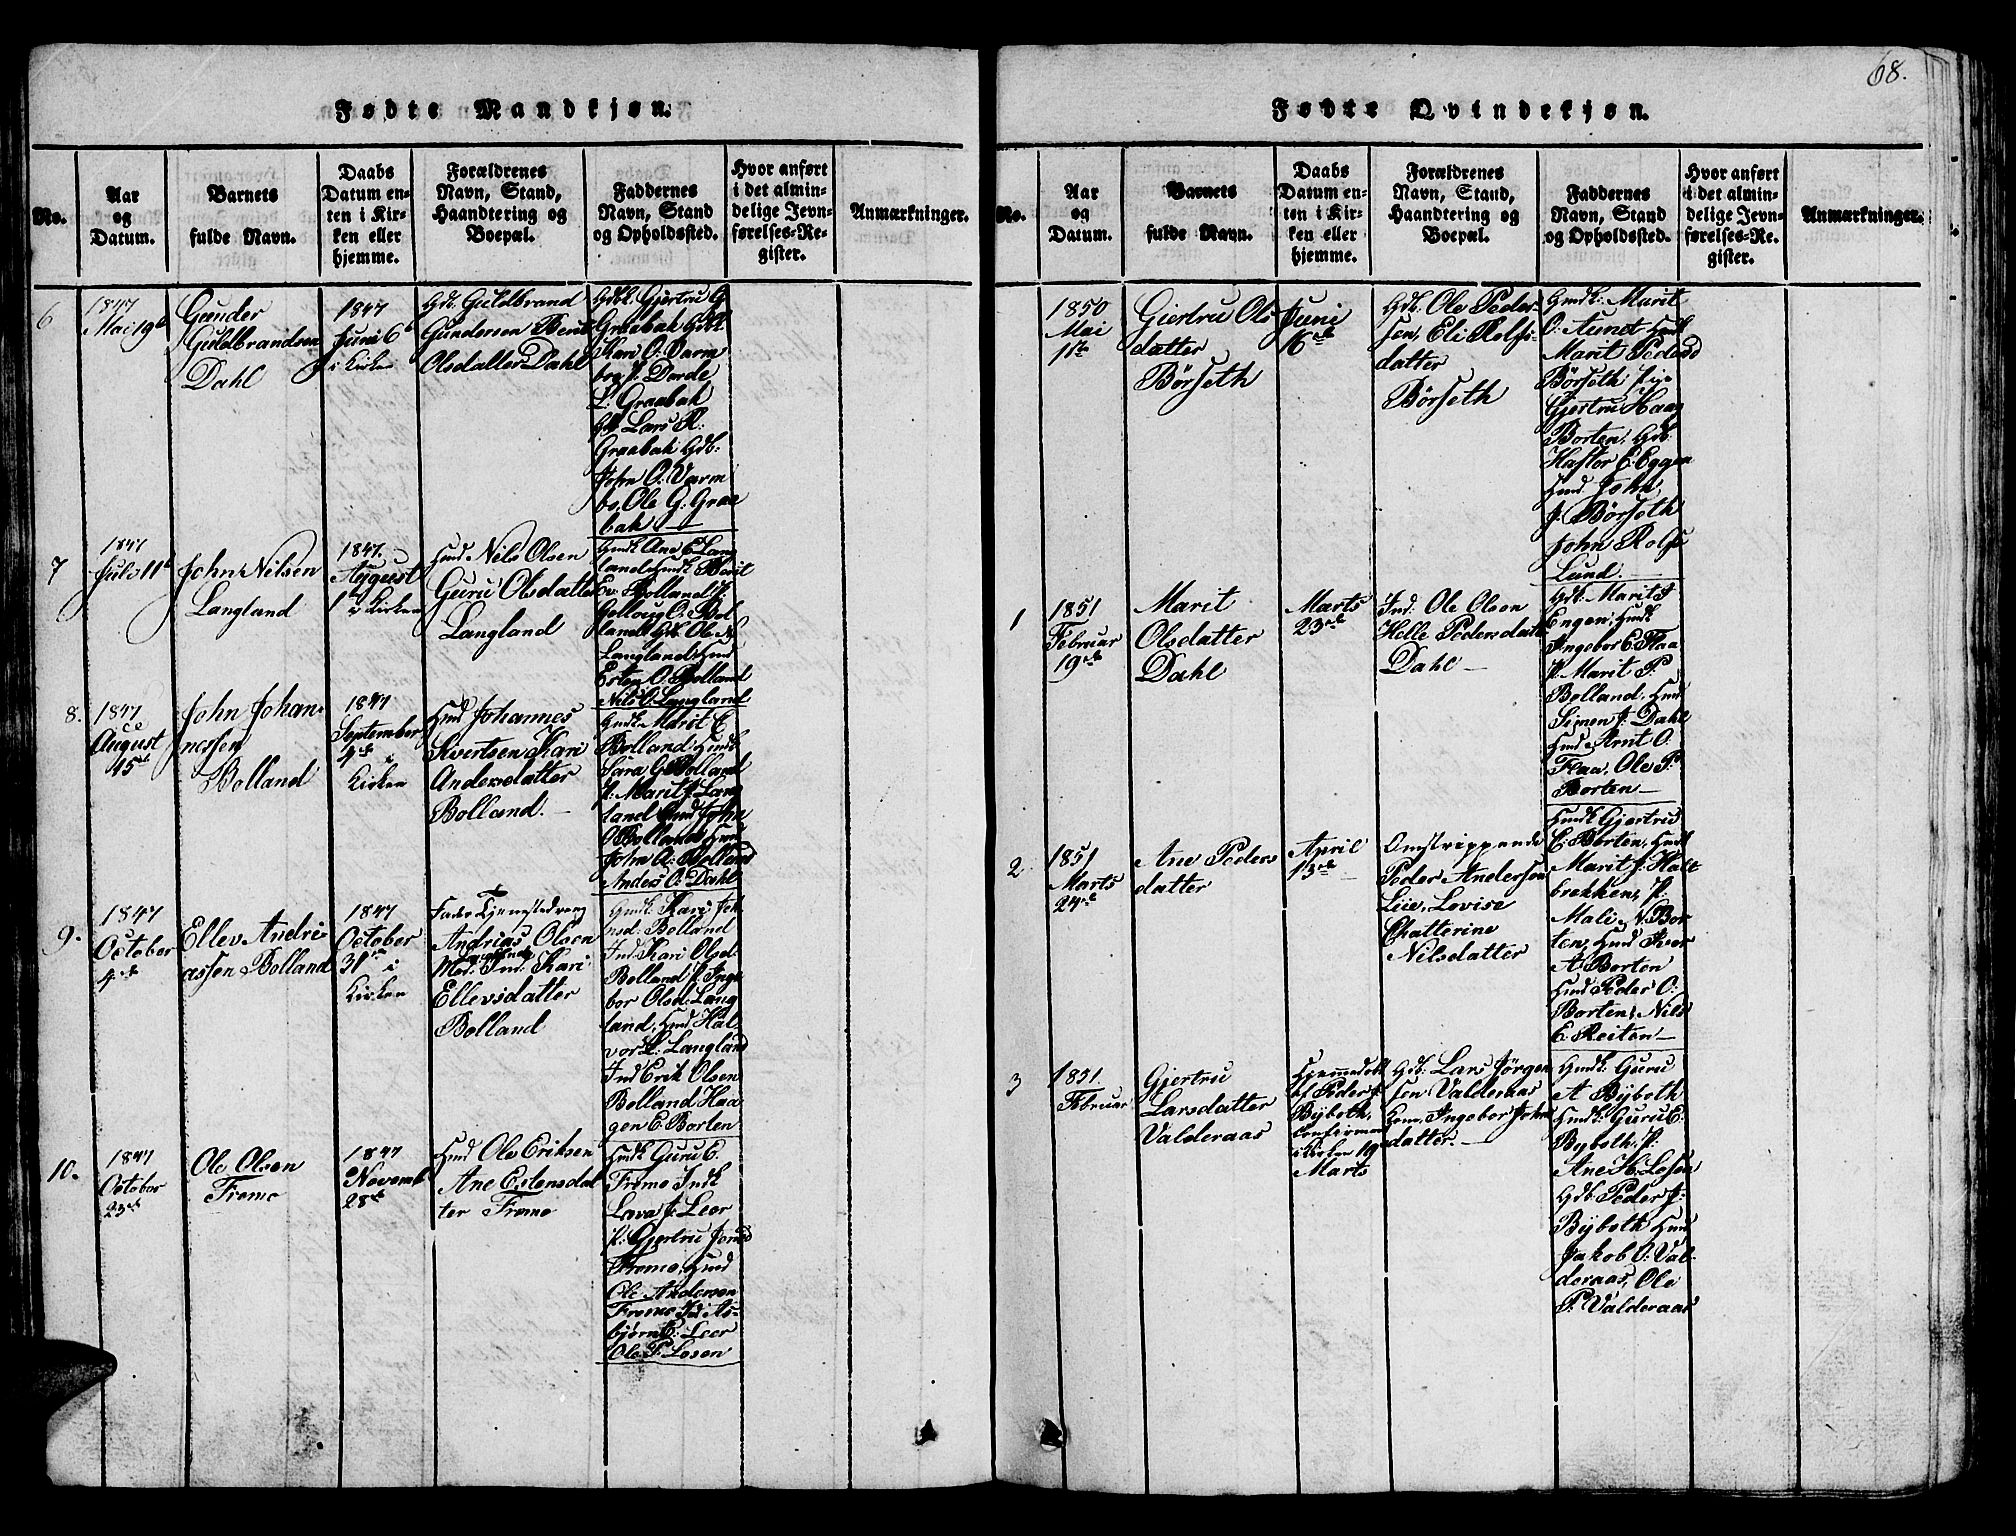 68.
Fødte Mandkjøn.
No.
Aar
og
Datum.
Barnets
fulde Navn.
Daabs
Datum en-
ten i Kir-
ken eller
hjemme.
Forældrenes
Navn, Stand,
Haandtering og
Boepæl.
Faddernes
Navn, Stand
og Opholdssted.
Hvor anført
i det almin-
delige Jevn-
førelses-Re-
gister.
Anmærkninger.
6
1847
Mai 19de
Gunder
Guldbrandsen
Dahl
1847
Juni 6te
i Kirken
Gdb. Guldbrand
Gundersen Berit
Olsdatter Dahl
Gdbk. Gjertru G
Graabak Gdbk
Kari O. Varm
bo, p. Dorde
L. Graabak
Gb Lars R.
Graabak Gdb:
John O: Varm
bo, Ole G. Graa
bak
7
1847
Juli 11te
John Nilsen
Langland
1847.
August
1te i Kirken
Hmd. Nils Olsen
Guru Olsdatter
Langland
Hmdk Ane E. Lang
land, Hmdk Berit
E. Bolland p.
Gollaug O. Bol
land Gdb. Ole N.
Langland, Hmd
Esten O. Bolland
Nils O. Langland
8.
1847
August
15de
John Johan-
nessen
Bolland
1847
September
4de i
Kirken
Hmd Johannes
Sivertsen Kari
Andersdatter
Bolland.
Hmdk Marit E.
Bolland. Hmdk
Sara G. Bolland
p. Marit J. Lang
land Hmd John
O Bolland Hmd
John A. Bolland
Anders O. Dahl
9.
1847
October
4de
Ellev Andri-
assen Bolland
1847
October
31te i
Kirken
Fader Tjenestedreng
Andrias Olsen
Langland
Mod. Ind. Kari
Ellevsdatter
Bolland
Hmdk. Kari Joh
nsd. Bolland
Ind. Kari Olsd
Bolland p Inge
bor Olsd. Lang
land, Hmd Hal
vor L. Langland
Ind Erik Olsen
Bolland Haa
gen E. Borten
10.
1847
October
23de
Ole Olsen
Fremo
1847
Novemb
28de
Hmd Ole Eriksen
Ane Estensdat
ter Fremo
Hmdk Guru E.
Fremo Indk
Lava J. Leer
p. Gjertru Jonsd
Fremo, Hmd
Ole Andersen
Fremo Ind As-
bjørn E. Leer
Ole P. Losen
Fødte Qvindekjøn.
No.
Aar
og
Datum.
Barnets
fulde Navn.
Daabs
Datum en-
ten i Kir-
ken eller
hjemme.
Forældrenes
Navn, Stand,
Haandtering og
Boepæl.
Faddernes
Navn, Stand
og Opholdssted.
Hvor anført
i det almin-
delige Jevn-
førelses-Re-
gister.
Anmærkninger.
1850
Mai
1te
Giertru Ols
datter
Børseth
Juni
16de
Gdb. Ole Peder-
sen, Eli Rolfs-
datter
Børseth
Hmdk: Marit
O: Aunet Hmdk
Marit Pedersd
Børseth pige
Gjertru Haag
Borten, Gdb.
Hastor E. Eggen
Hmd John
J. Børseth
John Rolfs
Lund.
1
1851
Februar
19de
Marit
Olsdatter
Dahl
Marts
23de
Ind. Ole Olsen
Helle Pedersdatt
Dahl
Gdb. Marit J
Engen, Hmdk
Ingebor E. Flaa
p. Marit P.
Bolland, Hmd
Simen J. Dahl
Hmd Arnt O.
Flaa, Ole P.
Borten
2
1851
Marts
24de
Ane Peders
datter
April
13de
Omstrippende
Peder Andersen
Lie, Lovise
Chatterine
Nilsdatter
Hmdk Gjertru
E. Borten, Hmdk
Marit J. Halt
brekken, p.
Mali N. Bor
ten, Hmd Iver
A. Borten
Hmd Peder O:
Borten, Nils
E. Reiten
3
1851
Februar
Gjertru
Larsdatter
Valderaas
Hjemmedøbt
af Peder J.
Byboth,
Confirmer
i Kirken 19
Marts
Gdb: Lars Jørgen
sen Valderaas
Kone, Ingebor Johns
datter.
Hmdk: Guru
A Bÿboth
Hmdk. Guru E.
Bÿboth, p.
Ane H. Losen
Gdb. Peder J.
Bÿboth Hmd
Jakob O: Val-
deraas, Ole
P. Valderaas